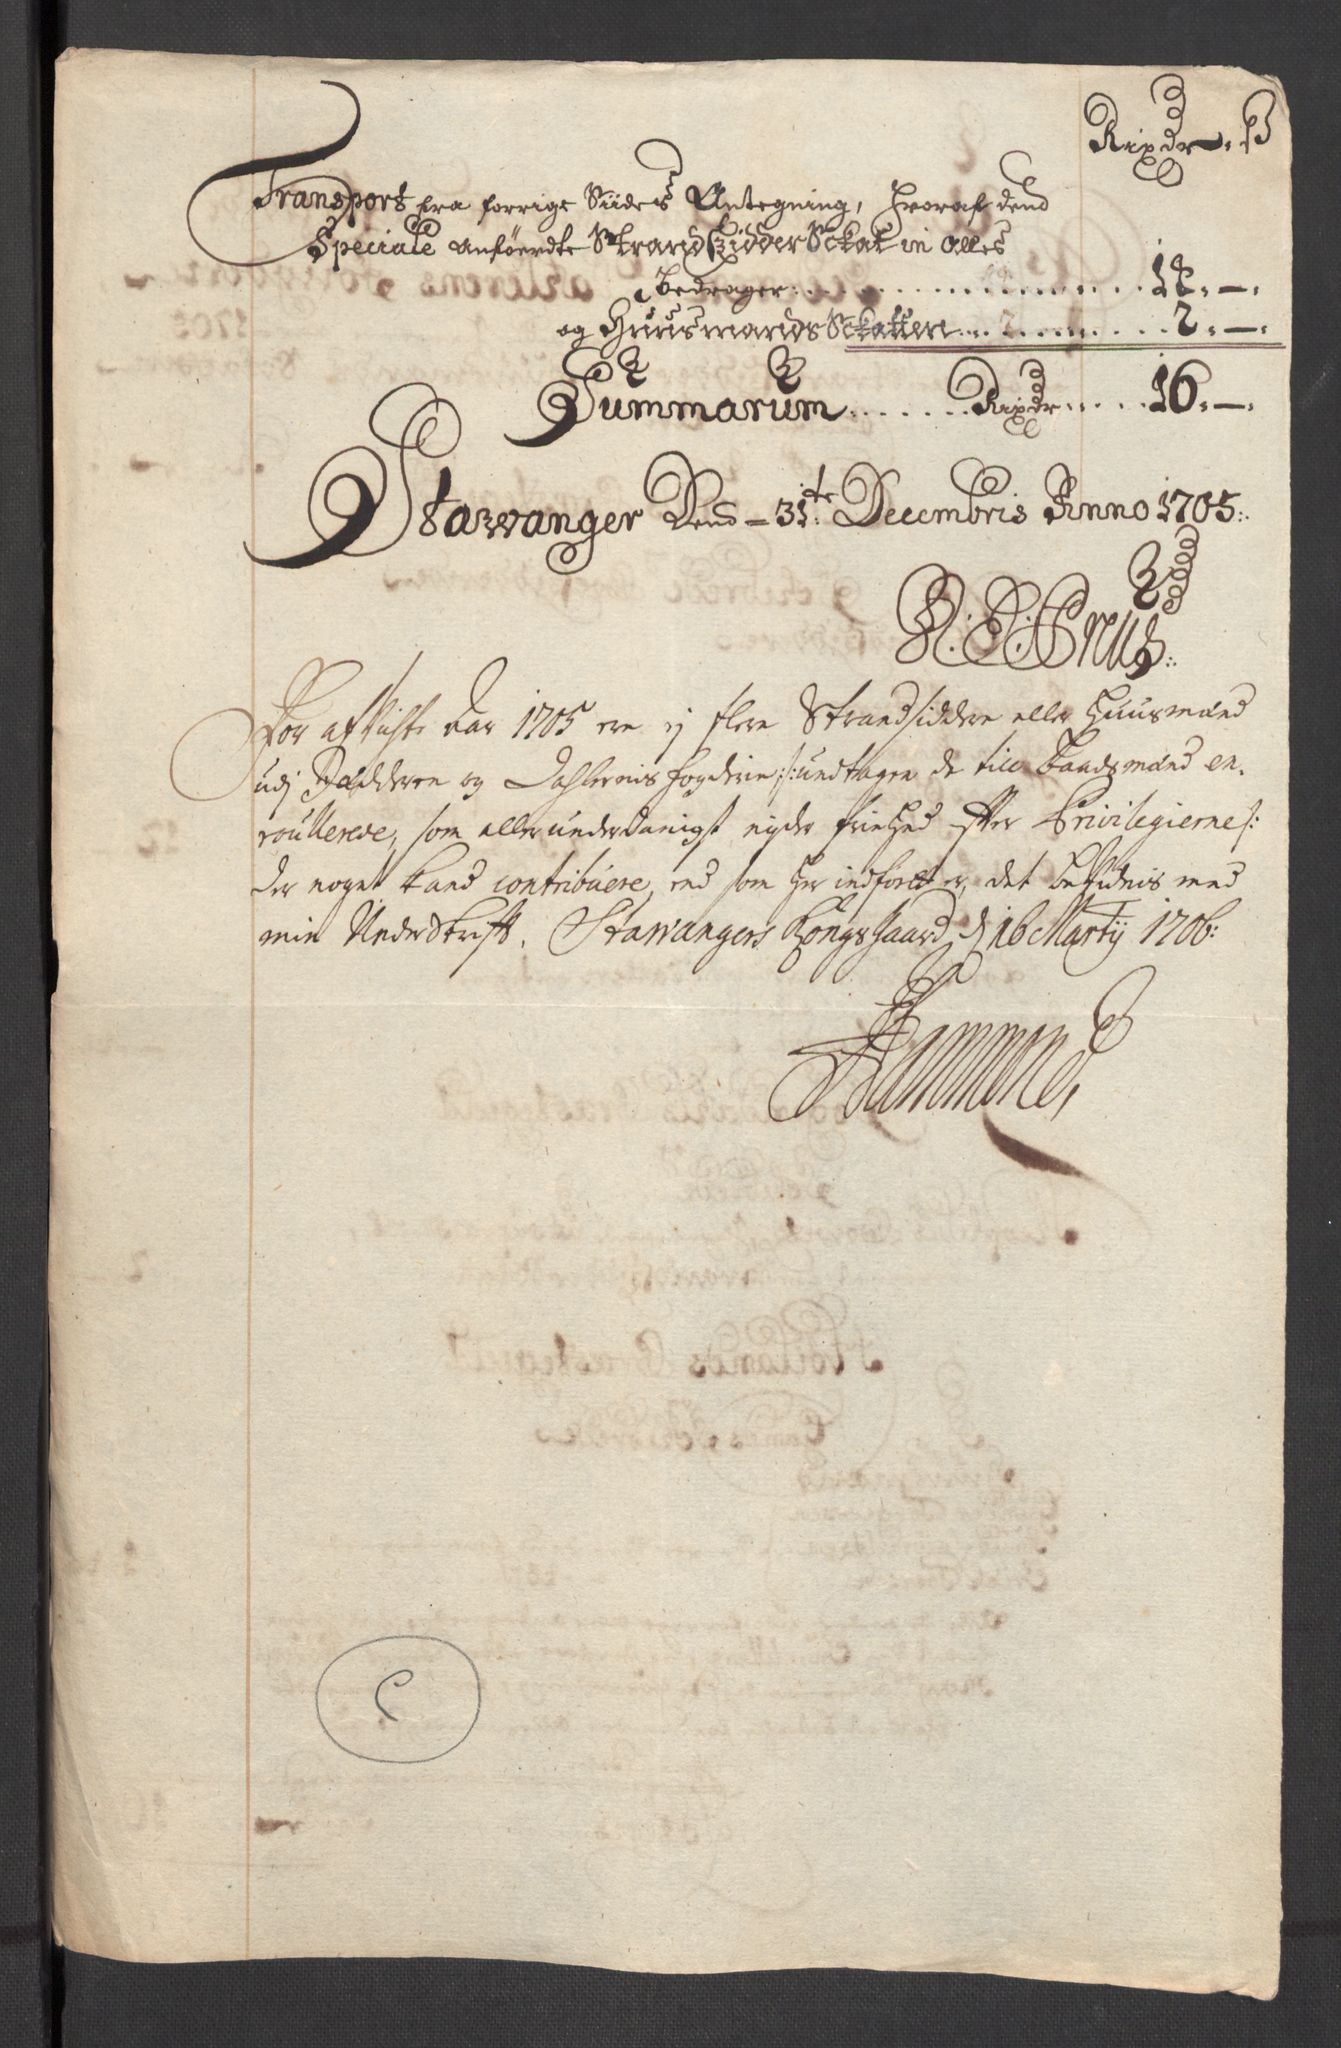 Rixdr. ß
Transport fra forrige Siides Antegning, hvoraf dend
Speciale anføerdte StrandsidderSckat in alles
bedrager . . . . . . . . . . 14. —.
og HuusmandsSckatten . . . . 2. —.
Summarum . . . . . . Rixdr . . . . . 16. —.
Stavvanger Dend = 31te Decembris Anno 1705.
For afvichte Aar 1705 ere ej flere Strandsiddere eller Huusmænd
udj Jædderen og Dahlernis fogderie /: undtagen de till baadsmænd en-
roullerede, som allerunderdanigst nyder friehed effter Privilegierne /:
der noget kand contribuere, end som her indført er, det bekidnis med
min Underskrift. Stawangers Kongsgaard d 16 Martij 1706:
Hammond